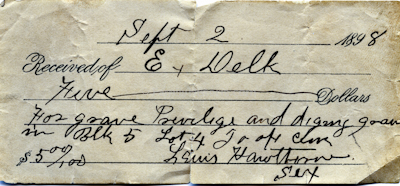 Sept 2 1898
Received, of E, Delk
Five Dollars
For grave Privilige and diging grave
in Blk 5 Lot 4
$5 00/00 Lewis Hawthorne
Sex